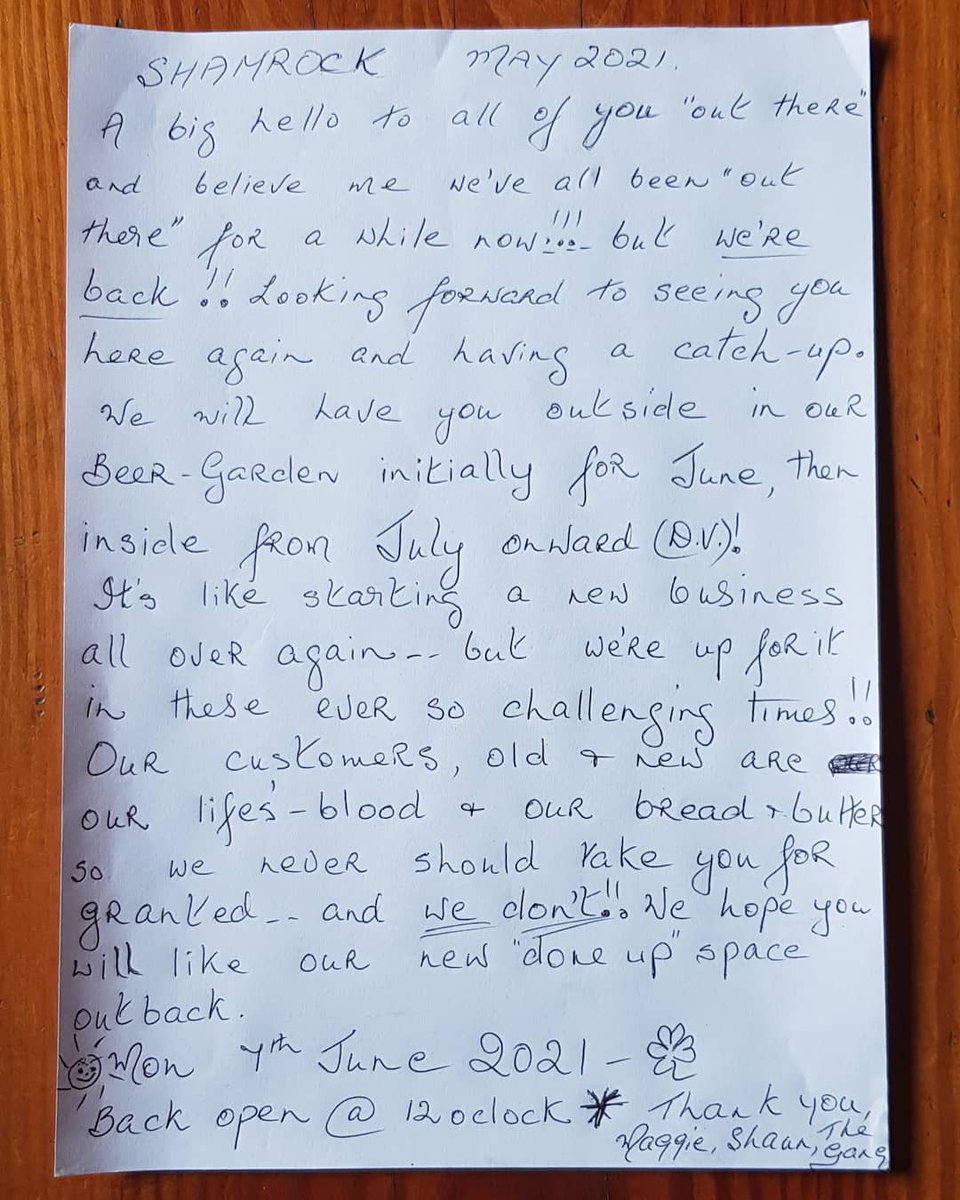 SHAMROCK MAY 2021.
A big hello to all of you "out there"
and believe me we've all been "out
there" for a while now!!!... but we're
back!! Looking forward to seeing you
here again and having a catch-up.
We will have you outside in our
Beer-Garden initially for June, then
inside from July onward (D.V.)!
It's like starting a new business
all over again -- but we're up for it
in these ever so challenging times!!
Our customers, old + new are
our life's-blood + our bread + butter
so we never should take you for
granted -- and we don't!! We hope you
will like our new "done up" space
outback.
Mon 7th June 2021 -
Back open @ 12 oclock * Thank you,
Maggie, Shaun, The
Gang